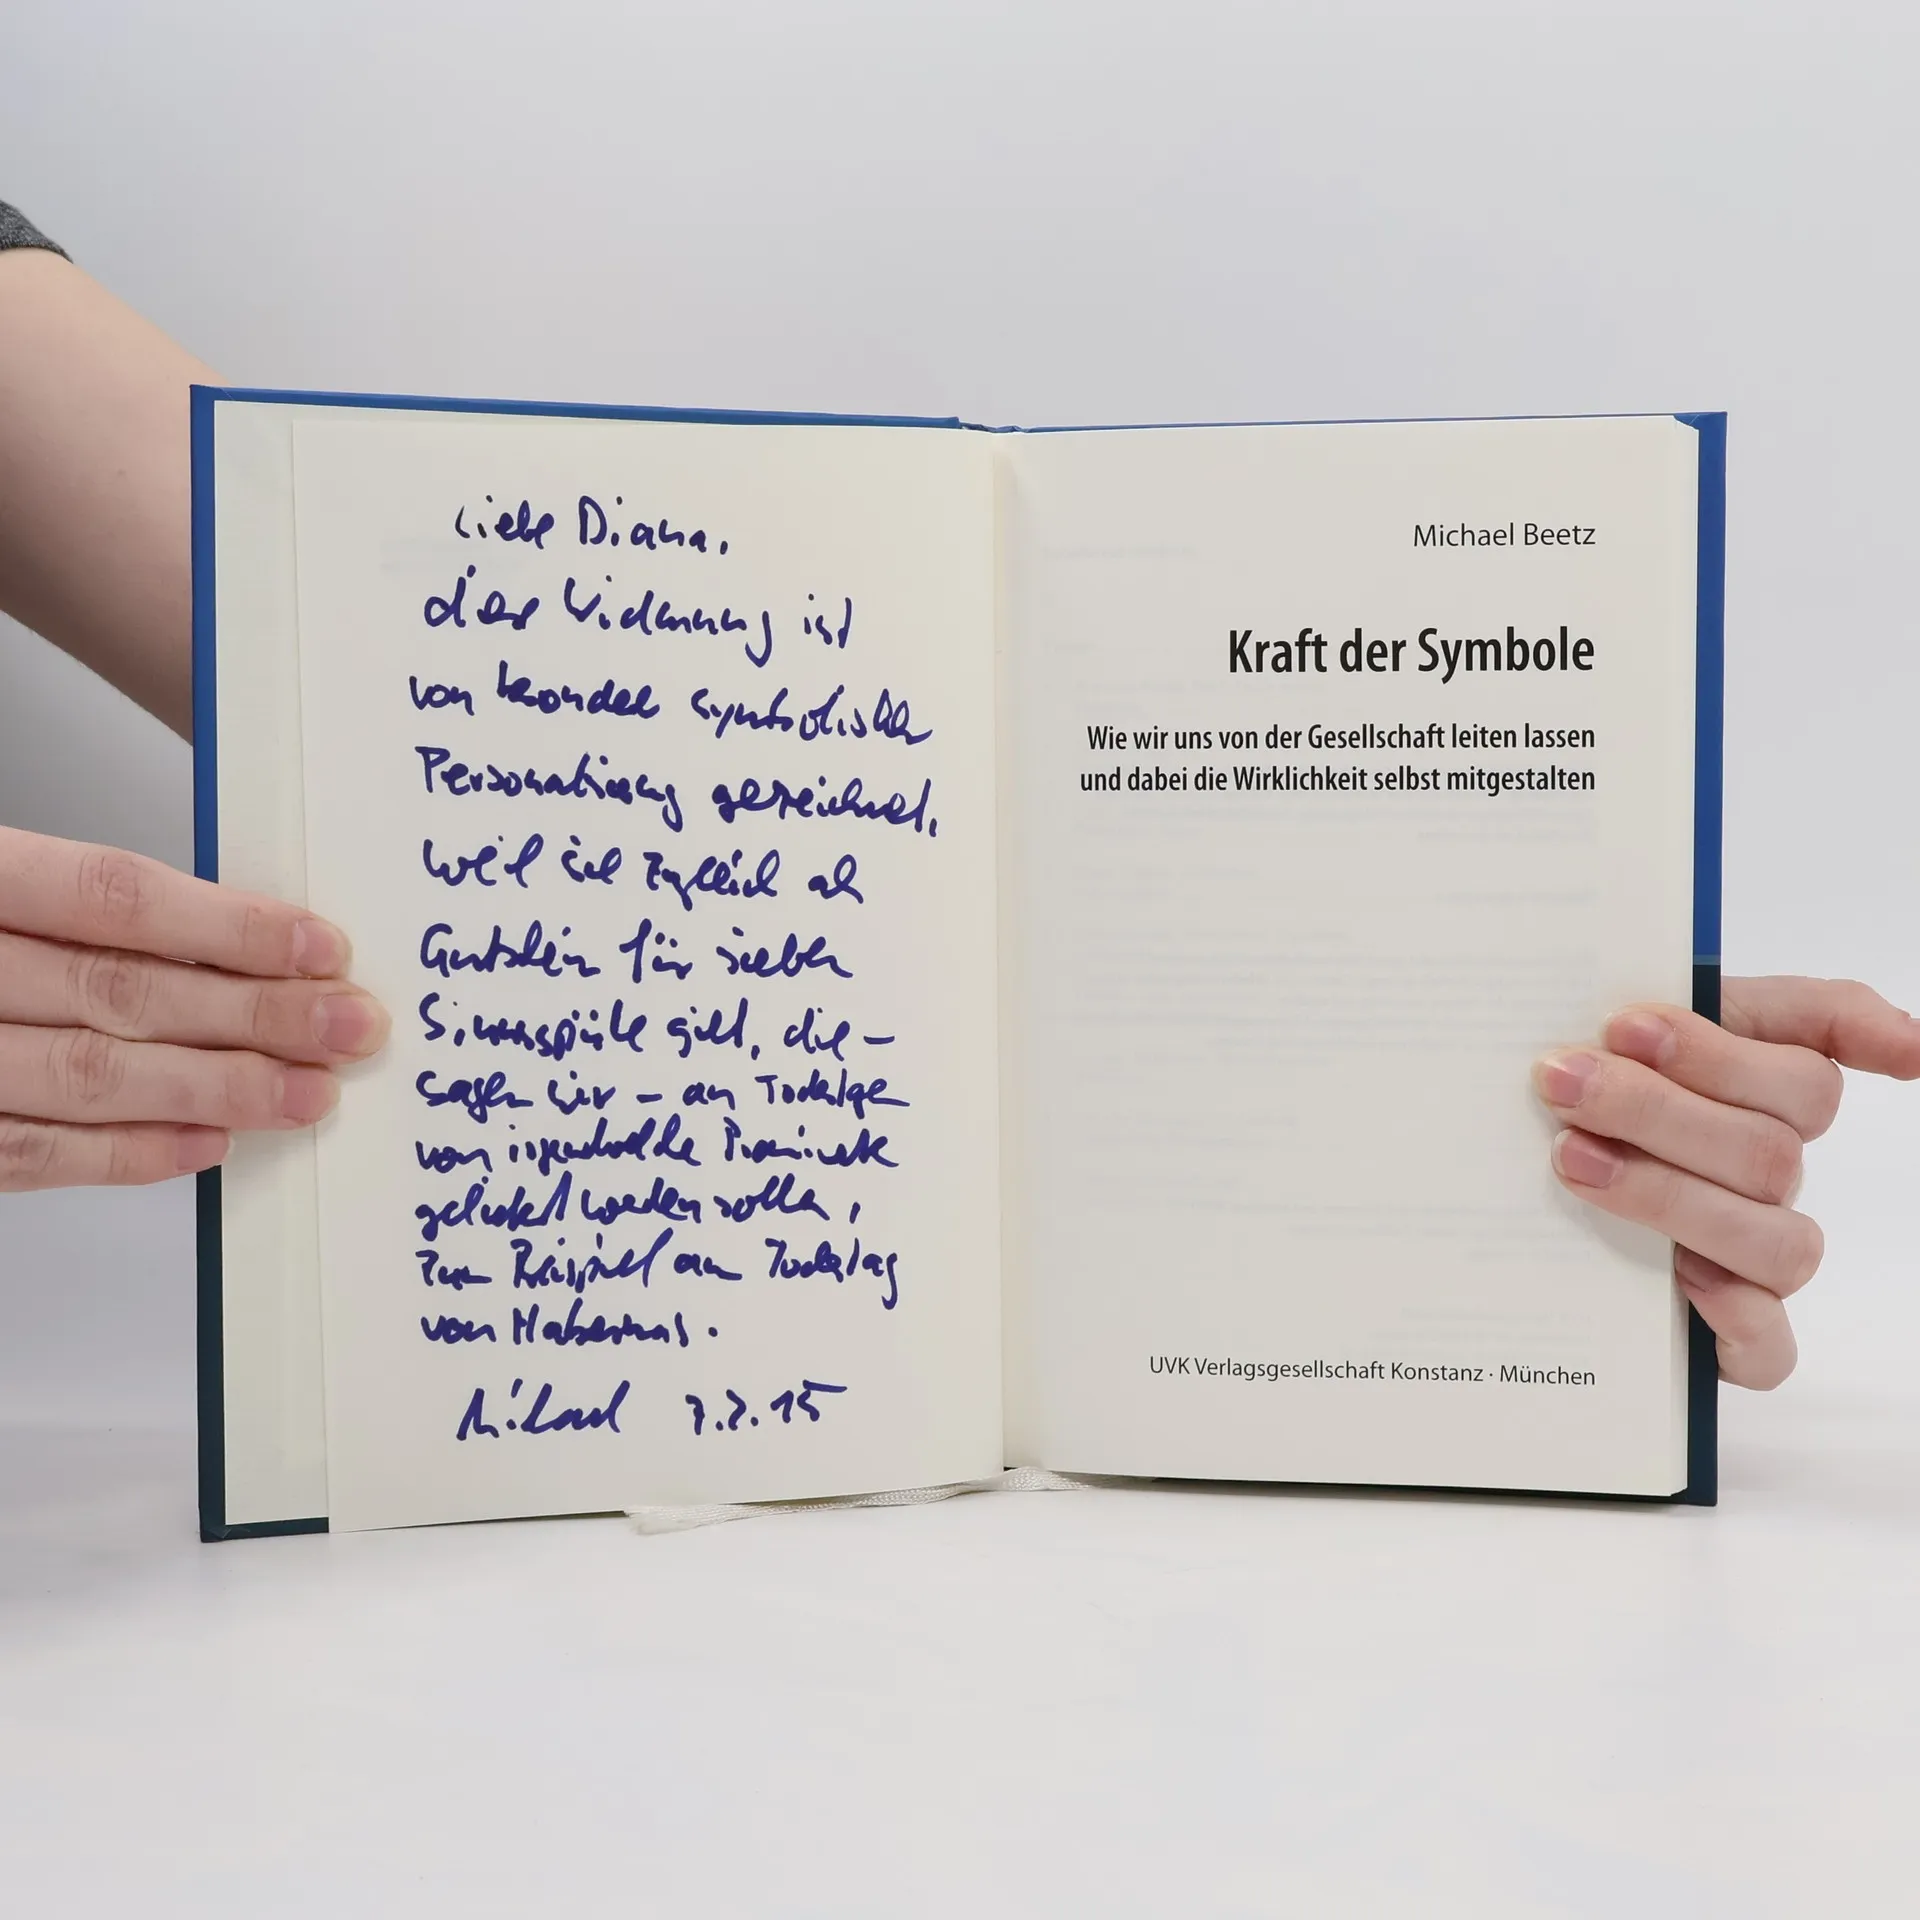 Liebe Diana,
diese Widmung ist
von besonderer symbolischer
gezeichnet,
weil sie zugleich als
Gutschein für sieben
Sinnsprüche gilt, die –
sagen wir – an Todestagen
von irgendwelche Prominente
geliefert werden sollen,
zum Beispiel am Todestag
von Habermas.
Michael 7.7.15
Michael Beetz
Kraft der Symbole
Wie wir uns von der Gesellschaft leiten lassen
und dabei die Wirklichkeit selbst mitgestalten
UVK Verlagsgesellschaft Konstanz · München